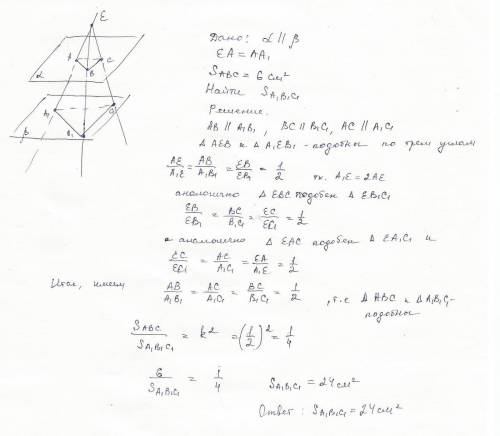 E
A C
B
α
A₁ C₁
B₁
β
Дано: α || β
EA = AA₁
S ABC = 6 см²
Найти S A₁B₁C₁
Решение.
AB || A₁B₁, BC || B₁C₁, AC || A₁C₁
Δ AEB и Δ A₁EB₁ - подобны по трем углам
AE/A₁E = AB/A₁B₁ = EB/EB₁ = 1/2 т.к. A₁E = 2AE
аналогично Δ EBC подобен Δ EB₁C₁
EB/EB₁ = BC/B₁C₁ = EC/EC₁ = 1/2
и аналогично Δ EAC подобен Δ EA₁C₁ и
EC/EC₁ = AC/A₁C₁ = EA/A₁E = 1/2
Итак, имеем AB/A₁B₁ = AC/A₁C₁ = BC/B₁C₁ = 1/2, т.е Δ ABC и Δ A₁B₁C₁-
подобны
S ABC/S A₁B₁C₁ = k² = (1/2)² = 1/4
6/S A₁B₁C₁ = 1/4 S A₁B₁C₁ = 24 см²
Ответ: S A₁B₁C₁ = 24 см²